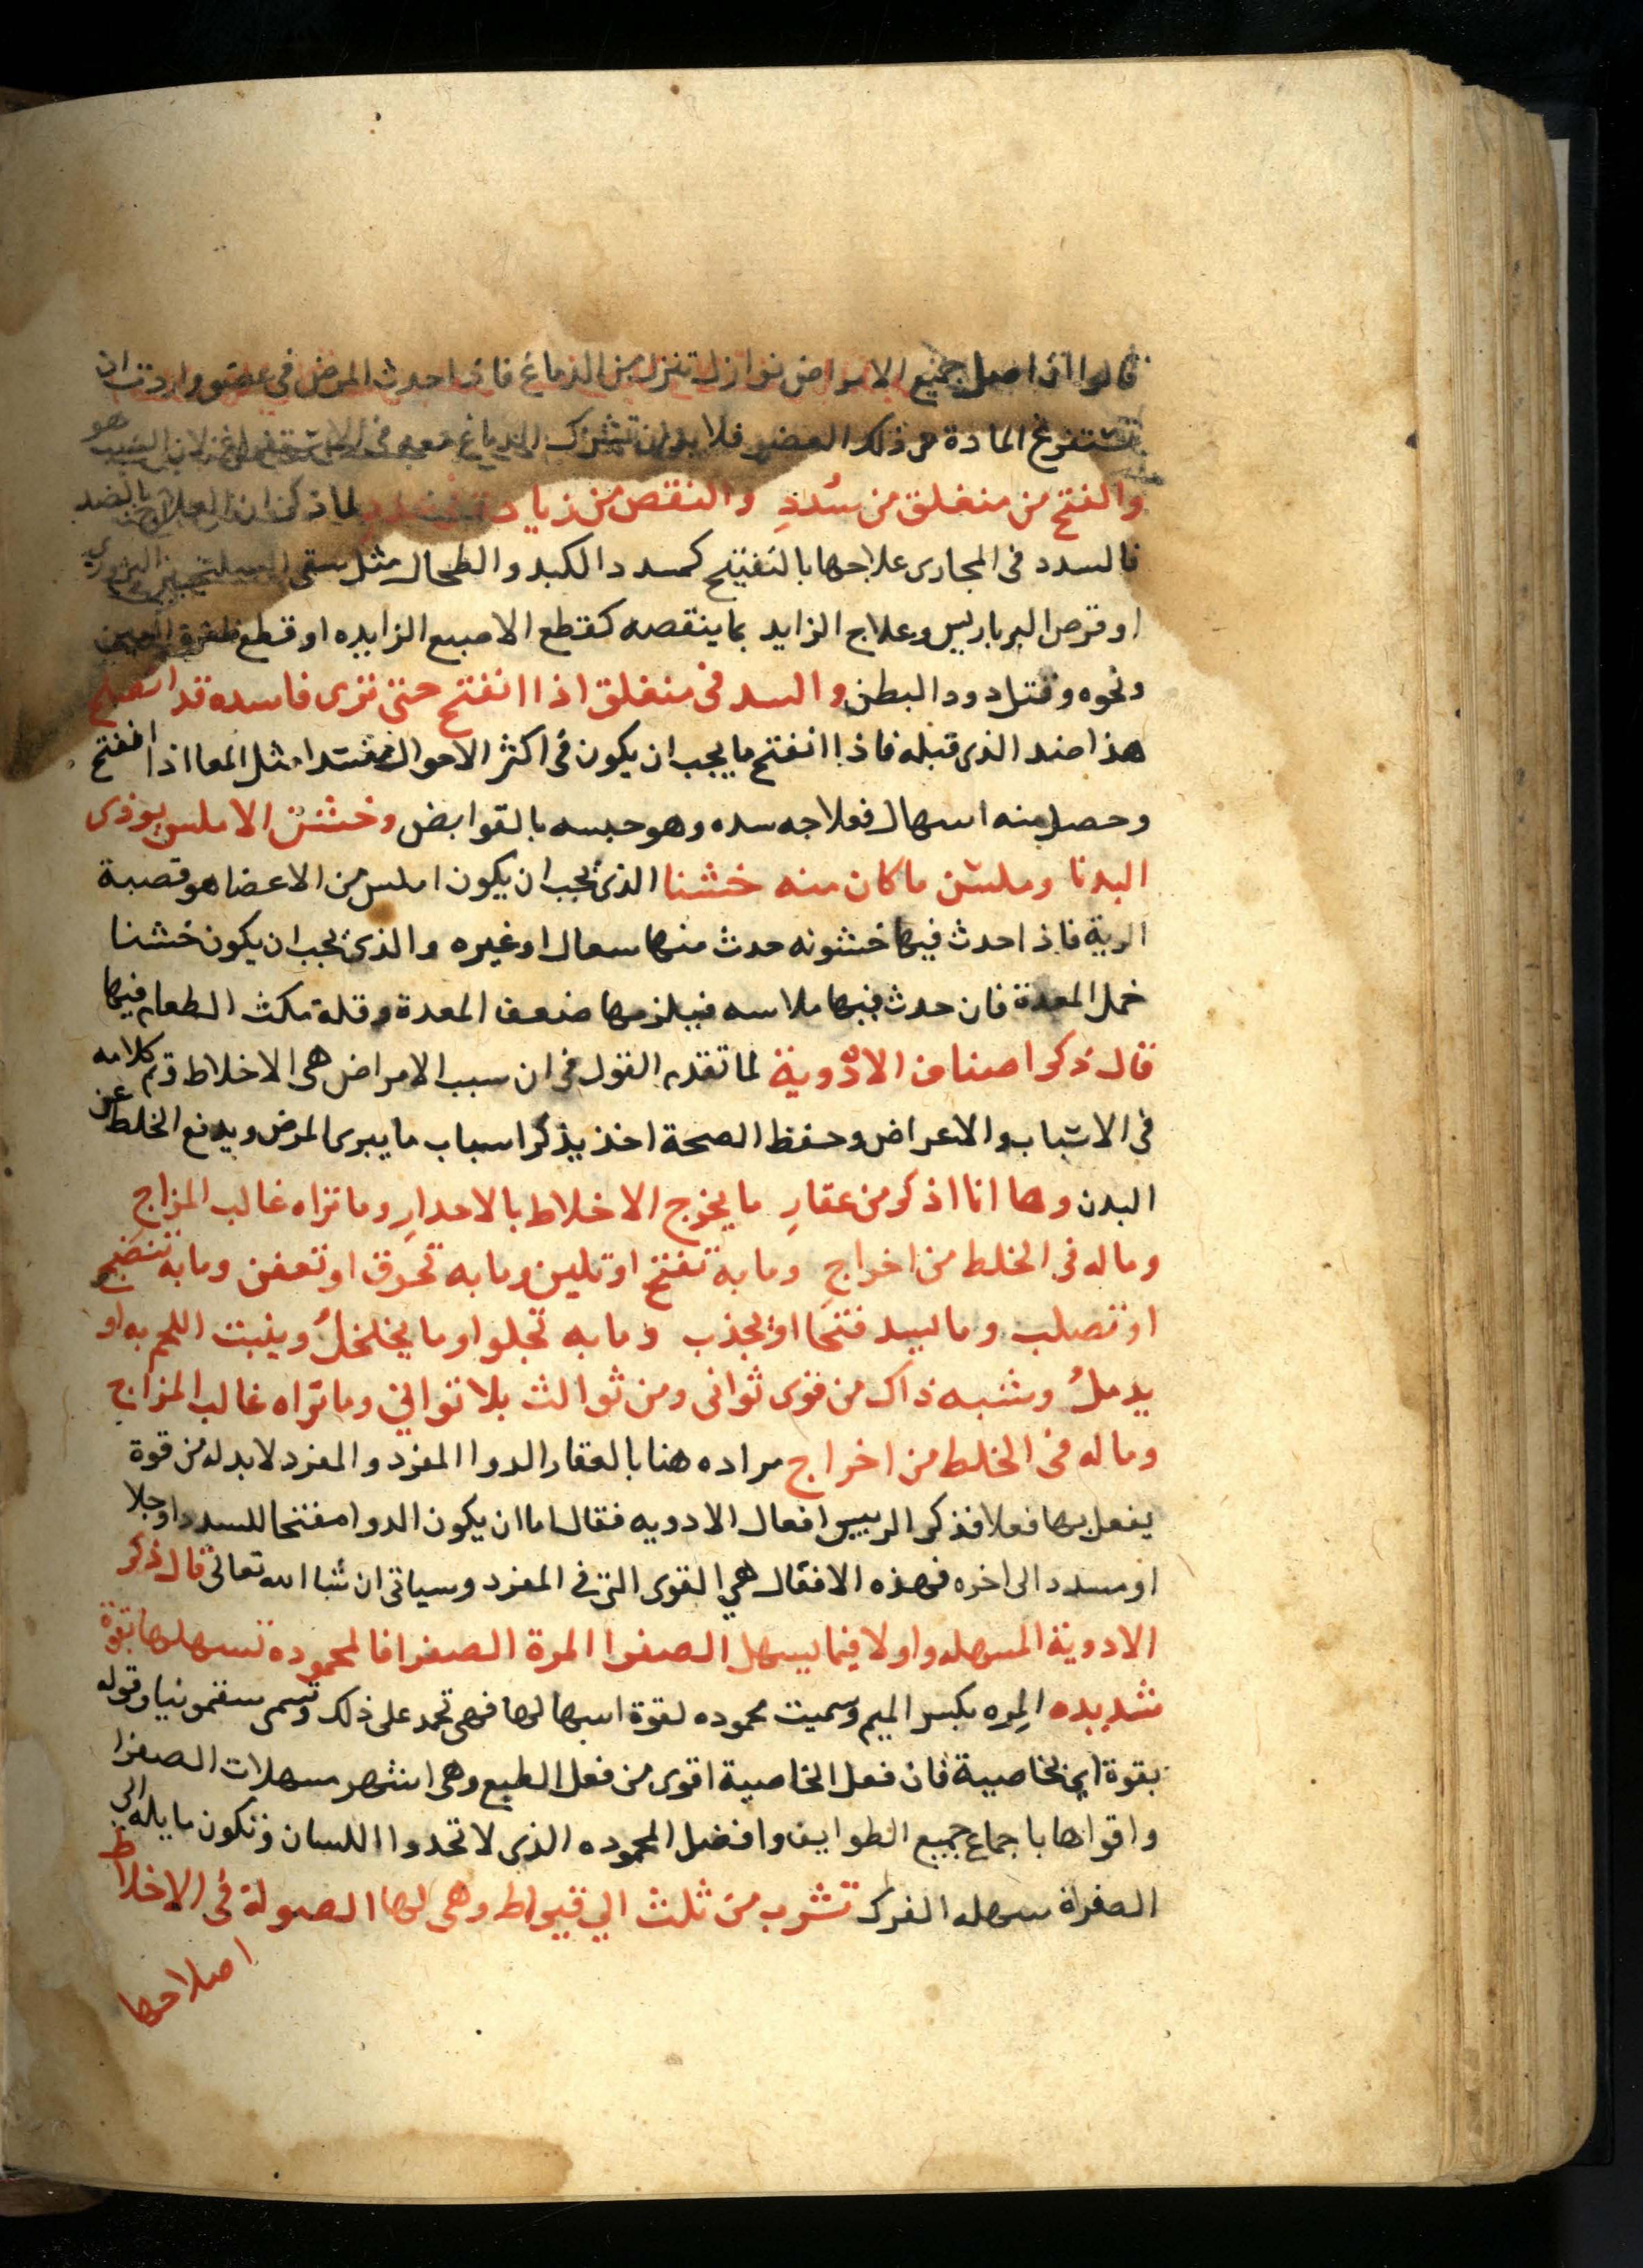 قالوا ان اصل جميع الامراض نوازل تنزل من الدماغ فاذا حدث المرض في عضو واردت ان
تستفرغ المادة من ذلك العضو فلا بد ان تشرك الدماغ معه في الاستفراغ لان السبب هو
والفتح من منغلق من سُددِ والنقص من زيادة لما ذكر ان العلاج بالضد
فالسدد فى المجارى علاجها بالتفتيح كمسدد الكبد والطحال مثل سقى السكنجبين البزوري
او قرص البرباريس وعلاج الزايد بما ينقصه كقطع الاصبع الزايده او قطع ظفرة العين
ونحوه وقتل دود البطن والسد فى منغلق اذا انفتح حتى ترى فاسده قد انصلح
هذا ضد الذى قبله فاذا انفتح ما يجب ان يكون فى اكثر الاحوال منسدا مثل المعا اذا انفتح
وحصل منه اسهال فعلاجه سده وهو حبسه بالقوابض وخشن الاملس يوذى
البدنا وملسّن ما كان منه خشنا الذى يجب ان يكون املس من الاعضا هو قصبة
الرية فاذا حدث فيها خشونه حدث منها سعال او غيره والذى يجب ان يكون خشنا
خمل المعدة فان حدث فيها ملاسه فيلزمها ضعف المعدة وقلة مكث الطعام فيها
قال ذكر اصناف الادوية لما تقدم القول فى ان سبب الامراض هى الاخلاط وتم كلامه
فى الاسباب والاعراض وحفظ الصحة اخذ يذكر اسباب ما يبرى المرض ويدفع الخلط عن
البدن وها انا اذكر من عقارِ ما يخرج الاخلاط بالاحدارِ وما تراه غالب المزاج
وماله فى الخلط من اخراجِ وما به تفتح او تلين وما به تحرق او تعفن وما به تنضج
او تصلب وما ليسد فتحا او يجذب وما به تجلوا وما يخلخلُ وينبت اللحم به او
يدملُ وشبه ذاك من قوى ثوانى ومن ثوالث بلا توانى وما تراه غالب المزاج
وماله فى الخلط من اخراج مراده هنا بالعقار الدوا المفرد والمفرد لا بد له من قوة
يفعل بها فعلا فذكر الرييس افعال الادويه فقال اما ان يكون الدوا مفتحا للسدد او جلا
او مسدد الى اخره فهذه الافعال هي القوى التى فى المفرد وسياتى ان شا الله تعالى قال ذكر
الادوية المسهله واولا فيما يسهل الصفرا المرة الصفرا فالمحموده تسهلها بقوة
شديده المِره بكسر الميم وسميت محموده لقوة اسهالها فهى تحمد على ذلك وتسمى سقمونيا وقوله
بقوة اى بخاصية فان فعل الخاصية اقوى من فعل الطبع وهى اشهر مسهلات الصفرا
واقواها باجماع جميع الطوايف وافضل المحموده الذى لا تحدوا اللسان وتكون مايله الى
الصفراة سهله الفرك تشرب من ثلث الي قيراط وهى لها الصولة فى الاخلاط
اصلاحها